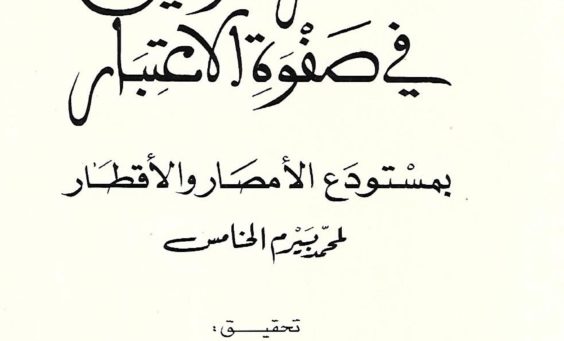 في صَفْوَةِ الاعتِبَار
بمسْتودَع الأمصَار والأقطَار
لمحمّد بَيْرم الخامس
تحقيـق :